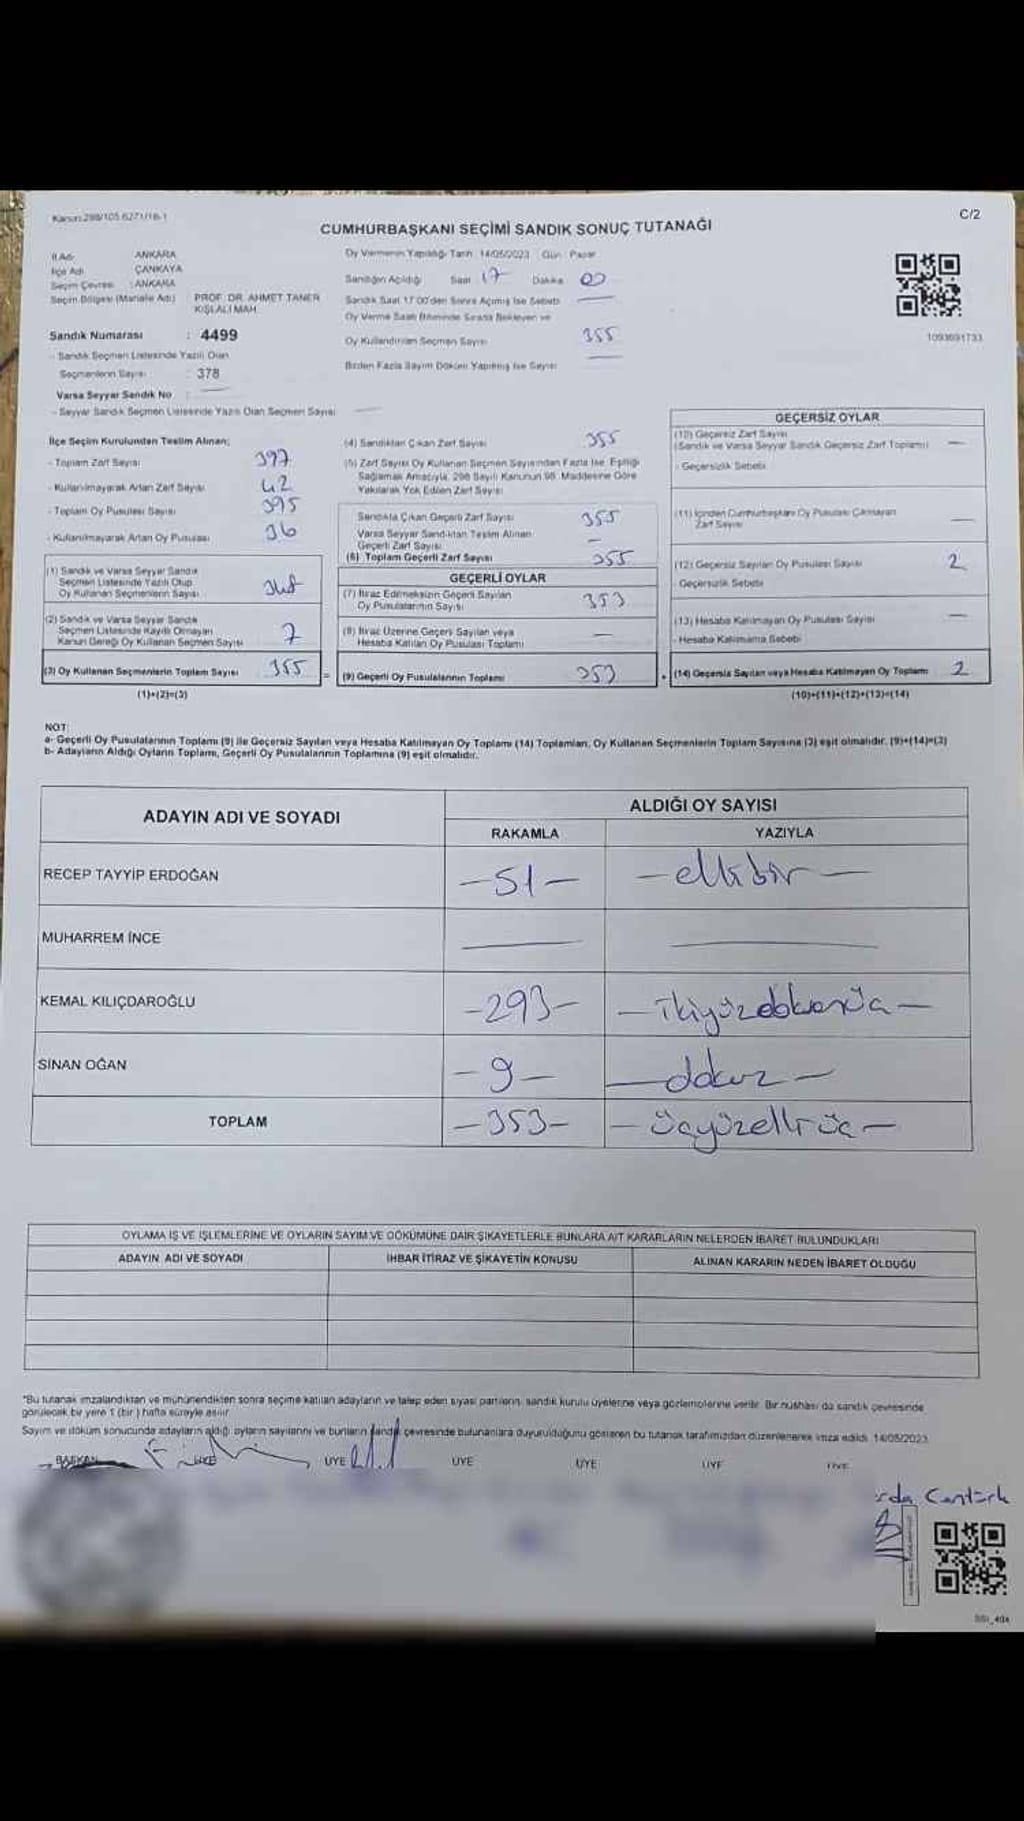 Kanun:298/105,6271/16-1
C/2
CUMHURBAŞKANI SEÇİMİ SANDIK SONUÇ TUTANAĞI
İl Adı : ANKARA
İlçe Adı : ÇANKAYA
Seçim Çevresi : ANKARA
Seçim Bölgesi (Mahalle Adı) : PROF. DR. AHMET TANER KIŞLALI MAH.
Sandık Numarası : 4499
- Sandık Seçmen Listesinde Yazılı Olan
Seçmenlerin Sayısı : 378
Varsa Seyyar Sandık No : —
- Seyyar Sandık Seçmen Listesinde Yazılı Olan Seçmen Sayısı —
Oy Vermenin Yapıldığı Tarih 14/05/2023 Gün : Pazar
Sandığın Açıldığı Saat 17 Dakika 00
Sandık Saat 17:00'den Sonra Açılmış İse Sebebi —
Oy Verme Saati Bitiminde Sırada Bekleyen ve
Oy Kullandırılan Seçmen Sayısı 355
Birden Fazla Sayım Döküm Yapılmış İse Sayısı —
1093691733
İlçe Seçim Kurulundan Teslim Alınan;
- Toplam Zarf Sayısı 397
- Kullanılmayarak Artan Zarf Sayısı 42
- Toplam Oy Pusulası Sayısı 395
- Kullanılmayarak Artan Oy Pusulası 36
(1) Sandık ve Varsa Seyyar Sandık
Seçmen Listesinde Yazılı Olup
Oy Kullanan Seçmenlerin Sayısı 348
(2) Sandık ve Varsa Seyyar Sandık
Seçmen Listesinde Kayıtlı Olmayan
Kanun Gereği Oy Kullanan Seçmen Sayısı 7
(3) Oy Kullanan Seçmenlerin Toplam Sayısı 355
(1)+(2)=(3)
(4) Sandıktan Çıkan Zarf Sayısı 355
(5) Zarf Sayısı Oy Kullanan Seçmen Sayısından Fazla İse, Eşitliği
Sağlamak Amacıyla, 298 Sayılı Kanunun 98. Maddesine Göre
Yakılarak Yok Edilen Zarf Sayısı
Sandıkta Çıkan Geçerli Zarf Sayısı 355
Varsa Seyyar Sandıktan Teslim Alınan
Geçerli Zarf Sayısı —
(6) Toplam Geçerli Zarf Sayısı 355
GEÇERLİ OYLAR
(7) İtiraz Edilmeksizin Geçerli Sayılan
Oy Pusulalarının Sayısı 353
(8) İtiraz Üzerine Geçerli Sayılan veya
Hesaba Katılan Oy Pusulası Toplamı —
(9) Geçerli Oy Pusulalarının Toplamı 353
GEÇERSİZ OYLAR
(10) Geçersiz Zarf Sayısı
(Sandık ve Varsa Seyyar Sandık Geçersiz Zarf Toplamı) —
- Geçersizlik Sebebi
(11) İçinden Cumhurbaşkanı Oy Pusulası Çıkmayan
Zarf Sayısı —
(12) Geçersiz Sayılan Oy Pusulası Sayısı 2
- Geçersizlik Sebebi
(13) Hesaba Katılmayan Oy Pusulası Sayısı —
- Hesaba Katılmama Sebebi
(14) Geçersiz Sayılan veya Hesaba Katılmayan Oy Toplamı 2
(10)+(11)+(12)+(13)=(14)
NOT:
a- Geçerli Oy Pusulalarının Toplamı (9) ile Geçersiz Sayılan veya Hesaba Katılmayan Oy Toplamı (14) Toplamları, Oy Kullanan Seçmenlerin Toplam Sayısına (3) eşit olmalıdır. (9)+(14)=(3)
b- Adayların Aldığı Oyların Toplamı, Geçerli Oy Pusulalarının Toplamına (9) eşit olmalıdır.
ADAYIN ADI VE SOYADI ALDIĞI OY SAYISI
RAKAMLA YAZIYLA
RECEP TAYYİP ERDOĞAN -51- -ellibir-
MUHARREM İNCE — —
KEMAL KILIÇDAROĞLU -293- -ikiyüzdoksanüç-
SİNAN OĞAN -9- -dokuz-
TOPLAM -353- -üçyüzelliüç-
OYLAMA İŞ VE İŞLEMLERİNE VE OYLARIN SAYIM VE DÖKÜMÜNE DAİR ŞİKAYETLERLE BUNLARA AİT KARARLARIN NELERDEN İBARET BULUNDUKLARI
ADAYIN ADI VE SOYADI İHBAR İTİRAZ VE ŞİKAYETİN KONUSU ALINAN KARARIN NEDEN İBARET OLDUĞU
*Bu tutanak imzalandıktan ve mühürlendikten sonra seçime katılan adayların ve talep eden siyasi partilerin, sandık kurulu üyelerine veya gözlemcilerine verilir. Bir nüshası da sandık çevresinde
görülecek bir yere 1 (bir) hafta süreyle asılır.
Sayım ve döküm sonucunda adayların aldığı oyların sayılarını ve bunların sandık çevresinde bulunanlara duyurulduğunu gösteren bu tutanak tarafımızdan düzenlenerek imza edildi. 14/05/2023
BAŞKAN ÜYE ÜYE ÜYE ÜYE ÜYE
rda Cantürk